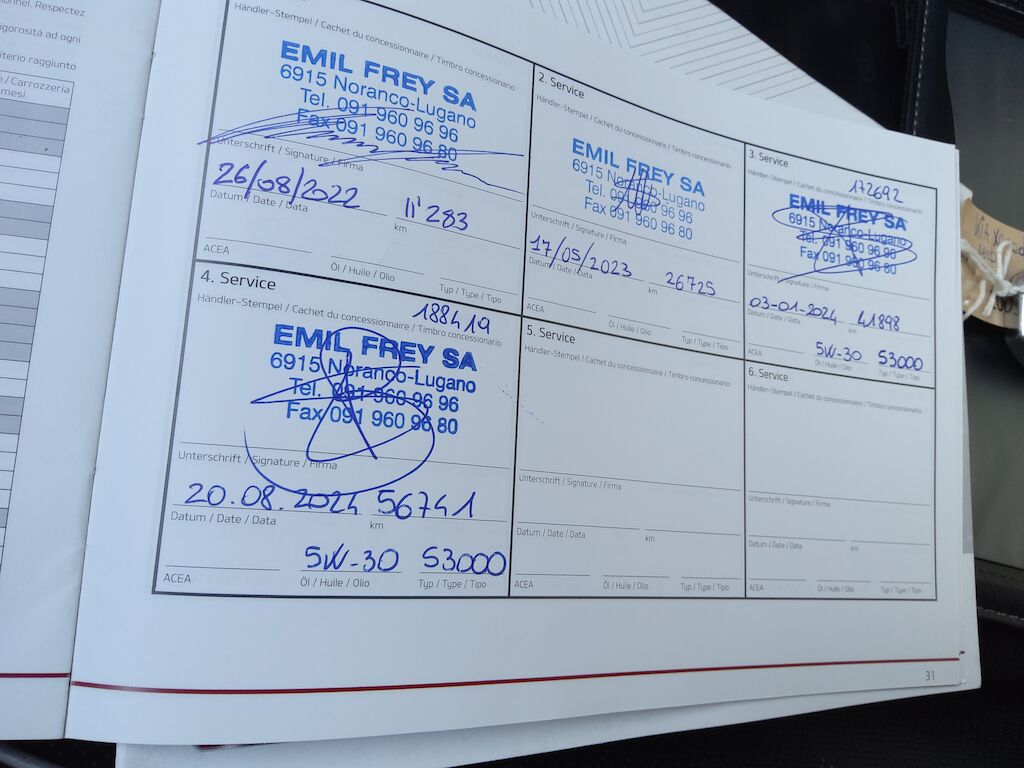 onnel. Respectez
igorosità ad ogni
iterio raggiunto
e / Carrozzeria
mesi
Händler-Stempel / Cachet du concessionnaire / Timbro concessionario
EMIL FREY SA
6915 Noranco-Lugano
Tel. 091 960 96 96
Fax 091 960 96 80
Unterschrift / Signature / Firma
26/08/2022 11'283
Datum / Date / Data km
ACEA Öl / Huile / Olio Typ / Type / Tipo
2. Service
Händler-Stempel / Cachet du concessionnaire / Timbro concessionario
EMIL FREY SA
6915 Noranco-Lugano
Tel. 091 960 96 96
Fax 091 960 96 80
Unterschrift / Signature / Firma
17/05/2023 26725
Datum / Date / Data km
ACEA Öl / Huile / Olio Typ / Type / Tipo
3. Service
172692
Händler-Stempel / Cachet du concessionnaire / Timbro concessionario
EMIL FREY SA
6915 Noranco-Lugano
Tel. 091 960 96 96
Fax 091 960 96 80
Unterschrift / Signature / Firma
03-01-2024 41898
Datum / Date / Data km
5W-30 S3000
ACEA Öl / Huile / Olio Typ / Type / Tipo
4. Service
188419
Händler-Stempel / Cachet du concessionnaire / Timbro concessionario
EMIL FREY SA
6915 Noranco-Lugano
Tel. 091 960 96 96
Fax 091 960 96 80
Unterschrift / Signature / Firma
20.08.2024 56741
Datum / Date / Data km
5W-30 S3000
ACEA Öl / Huile / Olio Typ / Type / Tipo
5. Service
Händler-Stempel / Cachet du concessionnaire / Timbro concessionario
Unterschrift / Signature / Firma
Datum / Date / Data km
ACEA Öl / Huile / Olio Typ / Type / Tipo
6. Service
Händler-Stempel / Cachet du concessionnaire / Timbro concessionario
Unterschrift / Signature / Firma
Datum / Date / Data km
ACEA Öl / Huile / Olio Typ / Type / Tipo
31